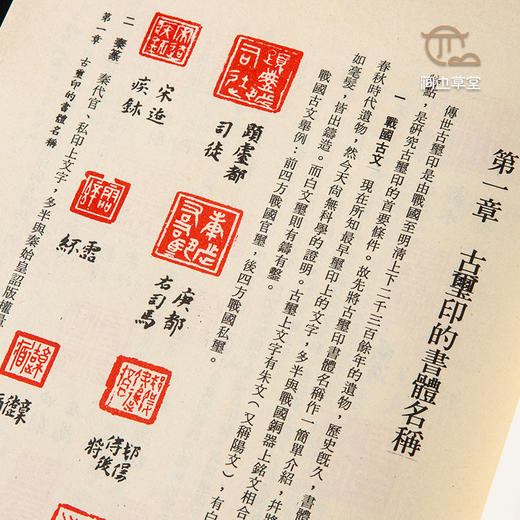 第一章 古璽印的書體名稱
傳世古璽印是由戰國至明清上下二千三百餘年的遺物，歷史旣久，書體
點，是研究古璽印的首要條件。故先將古璽印書體名稱作一簡單介紹，幷將
一 戰國古文 現在所知最早璽印上的文字，多半與戰國銅器上銘文相合
春秋時代遺物，然今天尙無科學的證明。古璽上文字有朱文（又稱陽文），有白
如毫髮，皆出鑄造。而白文璽則有鑄有鑿。
戰國古文舉例：前四方戰國官璽，後四方戰國私璽。
都
司徒
庚都
右司馬
二 秦篆
秦代官、私印上文字，多半與秦始皇詔版權量
第一章 古璽印的書體名稱
草堂